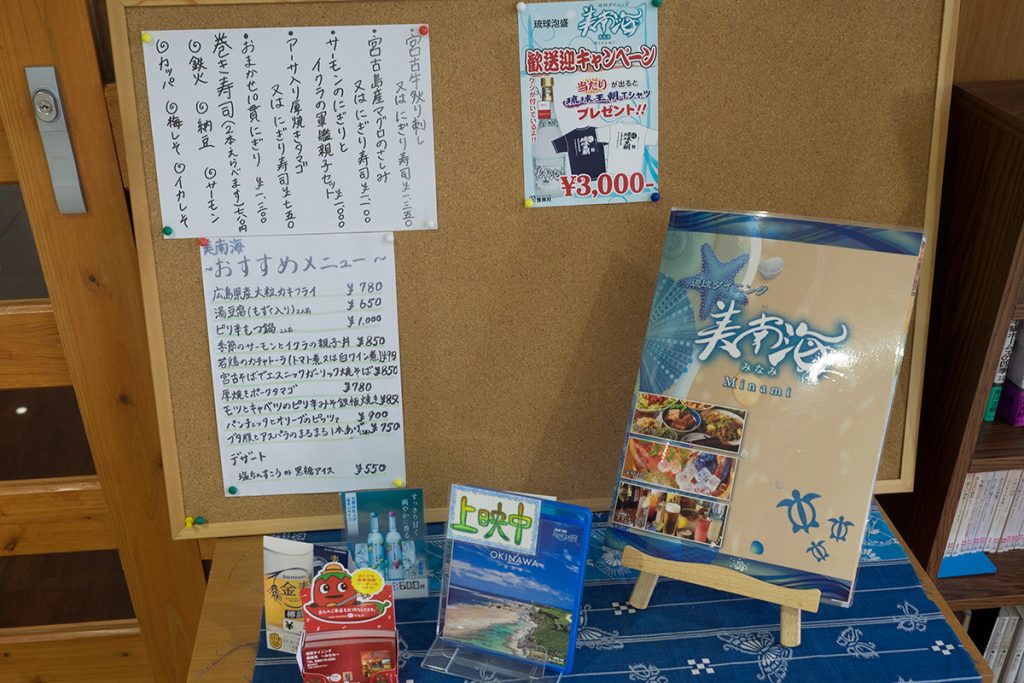 宮古牛炙り刺し
又は にぎり寿司 ¥1.350
宮古島産マグロのさしみ
又は にぎり寿司 ¥1.100
サーモンのにぎりと
イクラの軍艦親子セット ¥1.000
アーサ入り厚焼きタマゴ
又は にぎり寿司 ¥750
おまかせ10貫にぎり ¥1.200
巻き寿司(2本えらべます)
◎鉄火 ◎納豆 ◎サーモン
◎カッパ ◎梅しそ ◎イカしそ
美南海
~おすすめメニュー~
広島県産大粒カキフライ ¥780
湯豆腐(もずく入り)2人前 ¥650
ピリ辛もつ鍋 2人前 ¥1.000
季節のサーモンとイクラの親子丼 ¥850
若鶏のカチャトーラ(トマト煮又は白ワイン煮)
宮古そばでエスニックガーリック焼そば ¥850
厚焼きポークタマゴ ¥780
モツとキャベツのピリ辛みそ鉄板焼き ¥850
パンチェッタとオリーブのピッツァ ¥900
ブタ腹とアスパラのまるまる1本あげ ¥750
デザート
塩ちんすこう or 黒糖アイス ¥550
琉球泡盛
琉球ダイニング
美南海
MINAMI
歓送迎キャンペーン
クジが付いているよ!!
当たりが出ると
琉球王朝Tシャツ
プレゼント!!
¥3,000-
琉球ダイニング
美南海
みなみ
Minami
すっきり甘く
爽やかに香る
600円
上映中
OKINAWA
SUNTORY
金麦
琉球ダイニング